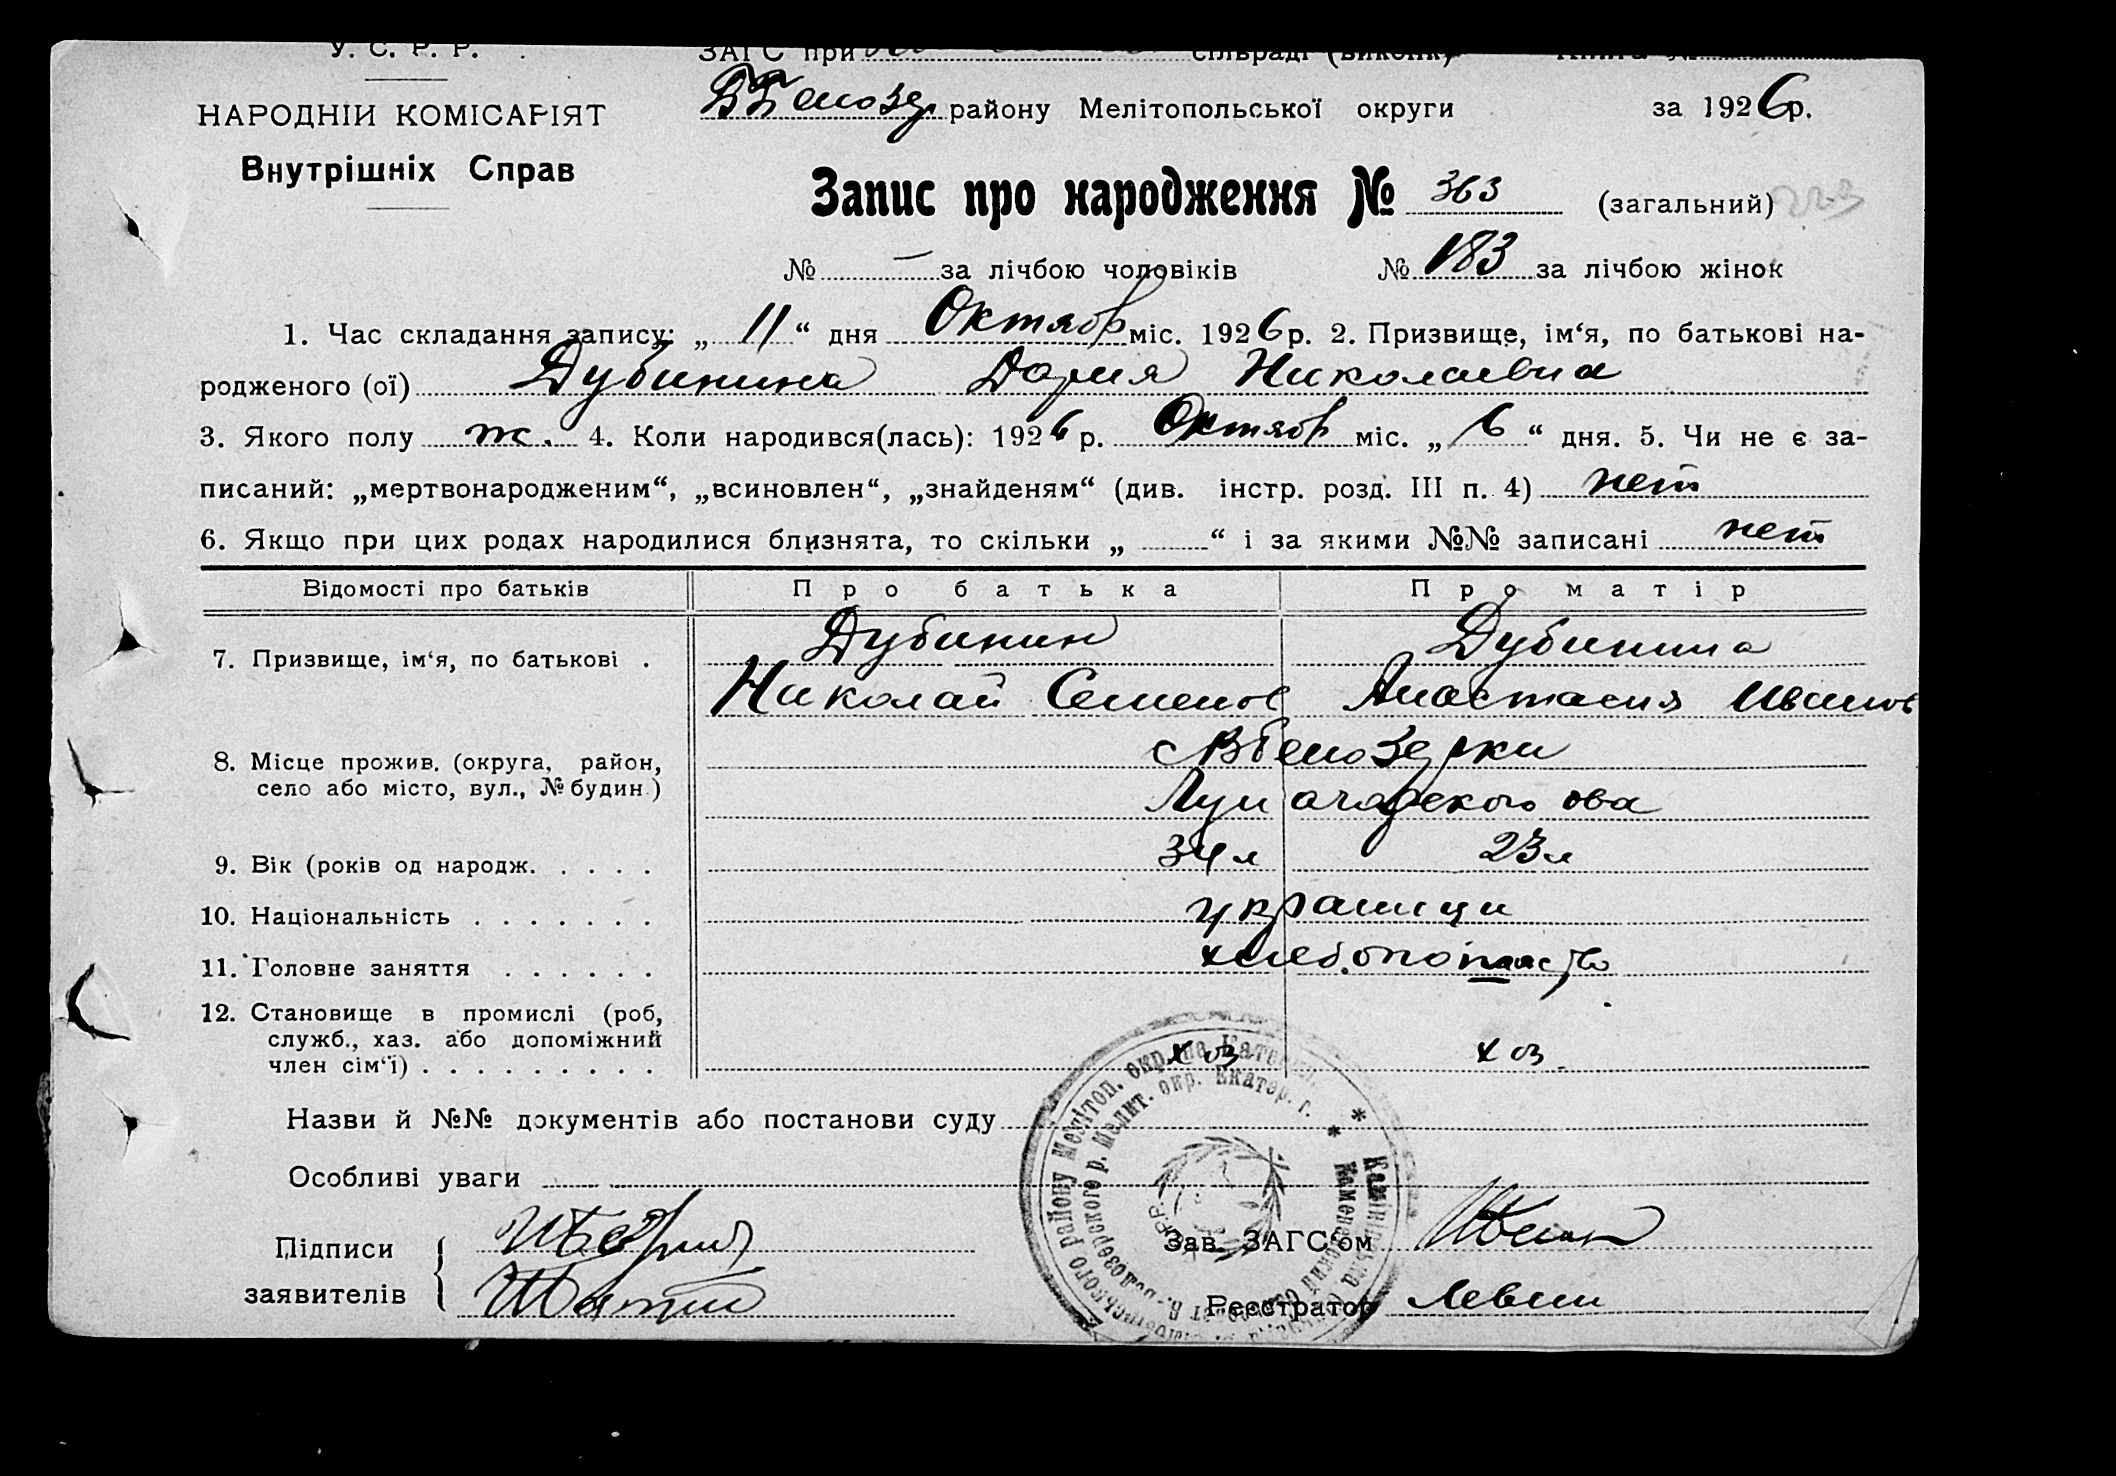 У. С. Р. Р. ЗАГС при сільраді (виконк)
ВБелозер. району Мелітопольської округи за 1926р.
НАРОДНІЙ КОМІСАРІЯТ
Внутрішніх Справ
Запис про народження № 363 (загальний) 223
№ — за лічбою чоловіків № 183 за лічбою жінок
1. Час складання запису: „11“ дня Октябр міс. 1926р. 2. Призвище, ім‘я, по батькові на-
родженого (ої) Дубинина Дария Николаевна
3. Якого полу ж. 4. Коли народився(лась): 1926р. Октябр міс. „6“ дня. 5. Чи не є за-
писаний: „мертвонародженим“, „всиновлен“, „знайденям“ (див. інстр. розд. III п. 4) нет
6. Якщо при цих родах народилися близнята, то скільки „ “ і за якими №№ записані нет
Відомості про батьків Про батька Про матір
7. Призвище, ім‘я, по батькові . Дубинин Дубинина
Николай Семенов Анастасия Иванов
8. Місце прожив. (округа, район, с ВБелозерки
село або місто, вул., № будин.) Луначарского
9. Вік (років од народж. . . . . 34л 23л
10. Національність . . . . . . . украинци
11. Головне заняття . . . . . .
12. Становище в промислі (роб,
служб., хаз. або допоміжний хоз хоз.
член сім‘ї) . . . . . . . . .
Назви й №№ документів або постанови суду
Особливі уваги
Підписи Зав. ЗАГС‘ом
заявителів Реєстратор Левен